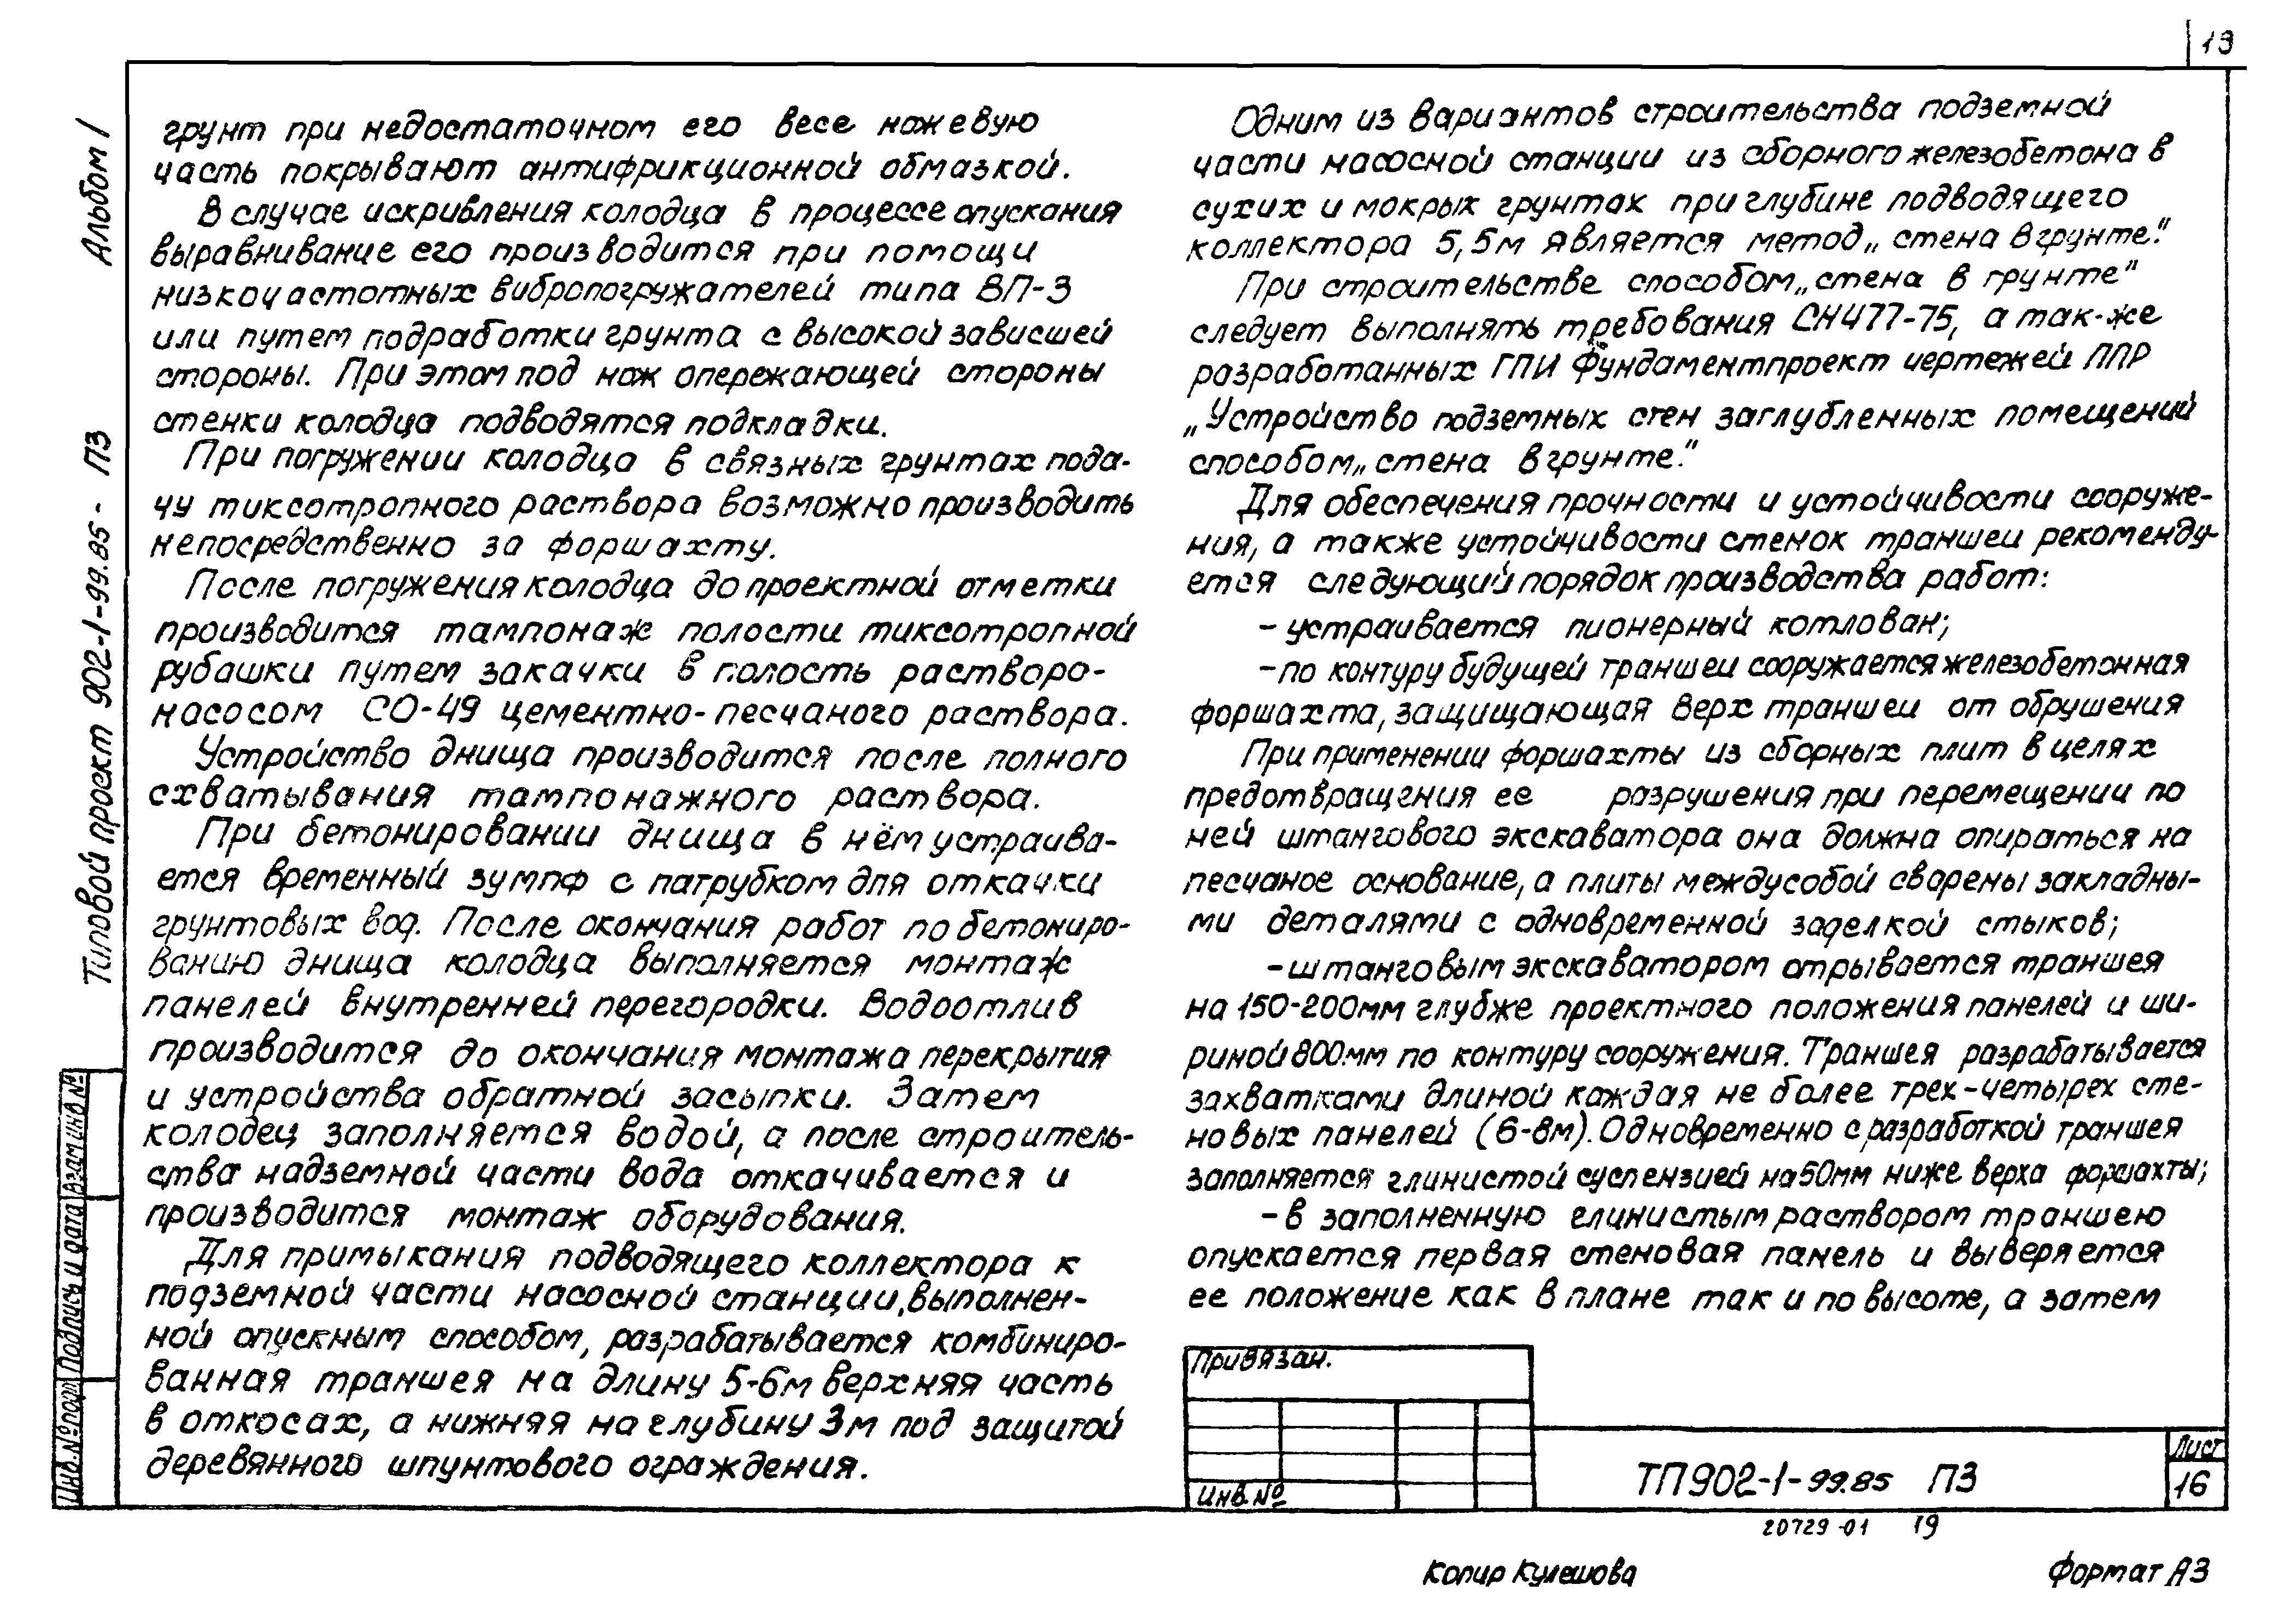 13
Альбом I
Типовой проект 902-1-99.85 - ПЗ
грунт при недостаточном его весе ножевую
часть покрывают антифрикционной обмазкой.
В случае искривления колодца в процессе опускания
выравнивание его производится при помощи
низкочастотных вибропогружателей типа ВП-3
или путем подработки грунта с высокой зависшей
стороны. При этом под нож опережающей стороны
стенки колодца подводятся подкладки.
При погружении колодца в связных грунтах пода-
чу тиксотропного раствора возможно производить
непосредственно за форшахту.
После погружения колодца до проектной отметки
производится тампонаж полости тиксотропной
рубашки путем закачки в полость растворо-
насосом СО-49 цементно-песчаного раствора.
Устройство днища производится после полного
схватывания тампонажного раствора.
При бетонировании днища в нём устраива-
ется временный зумпф с патрубком для откачки
грунтовых вод. После окончания работ по бетониро-
ванию днища колодца выполняется монтаж
панелей внутренней перегородки. Водоотлив
производится до окончания монтажа перекрытия
и устройства обратной засыпки. Затем
колодец заполняется водой, а после строитель-
ства надземной части вода откачивается и
производится монтаж оборудования.
Для примыкания подводящего коллектора к
подземной части насосной станции, выполнен-
ной опускным способом, разрабатывается комбиниро-
ванная траншея на длину 5-6м верхняя часть
в откосах, а нижняя на глубину 3м под защитой
деревянного шпунтового ограждения.
Одним из вариантов строительства подземной
части насосной станции из сборного железобетона в
сухих и мокрых грунтах при глубине подводящего
коллектора 5,5м является метод „стена в грунте".
При строительстве способом „стена в грунте"
следует выполнять требования СН477-75, а так-же
разработанных ГПИ Фундаментпроект чертежей ППР
„Устройство подземных стен заглубленных помещений
способом „стена в грунте".
Для обеспечения прочности и устойчивости сооруже-
ния, а также устойчивости стенок траншеи рекоменду-
ется следующий порядок производства работ:
- устраивается пионерный котлован;
- по контуру будущей траншеи сооружается железобетонная
форшахта, защищающая верх траншеи от обрушения
При применении форшахты из сборных плит в целях
предотвращения ее разрушения при перемещении по
ней штангового экскаватора она должна опираться на
песчаное основание, а плиты междусобой сварены закладны-
ми деталями с одновременной заделкой стыков;
- штанговым экскаватором отрывается траншея
на 150-200мм глубже проектного положения панелей и ши-
риной 800мм по контуру сооружения. Траншея разрабатывается
захватками длиной каждая не более трех-четырех сте-
новых панелей (6-8м). Одновременно с разработкой траншея
заполняется глинистой суспензией на 50мм ниже верха форшахты;
- в заполненную глинистым раствором траншею
опускается первая стеновая панель и выверяется
ее положение как в плане так и по высоте, а затем
Привязан.
Инв.№
ТП902-1-99.85 ПЗ
Лист
16
Взам инв №
Подпись и дата
Инв.№ подл
20729-01 19
Копир Кулешова
Формат А3